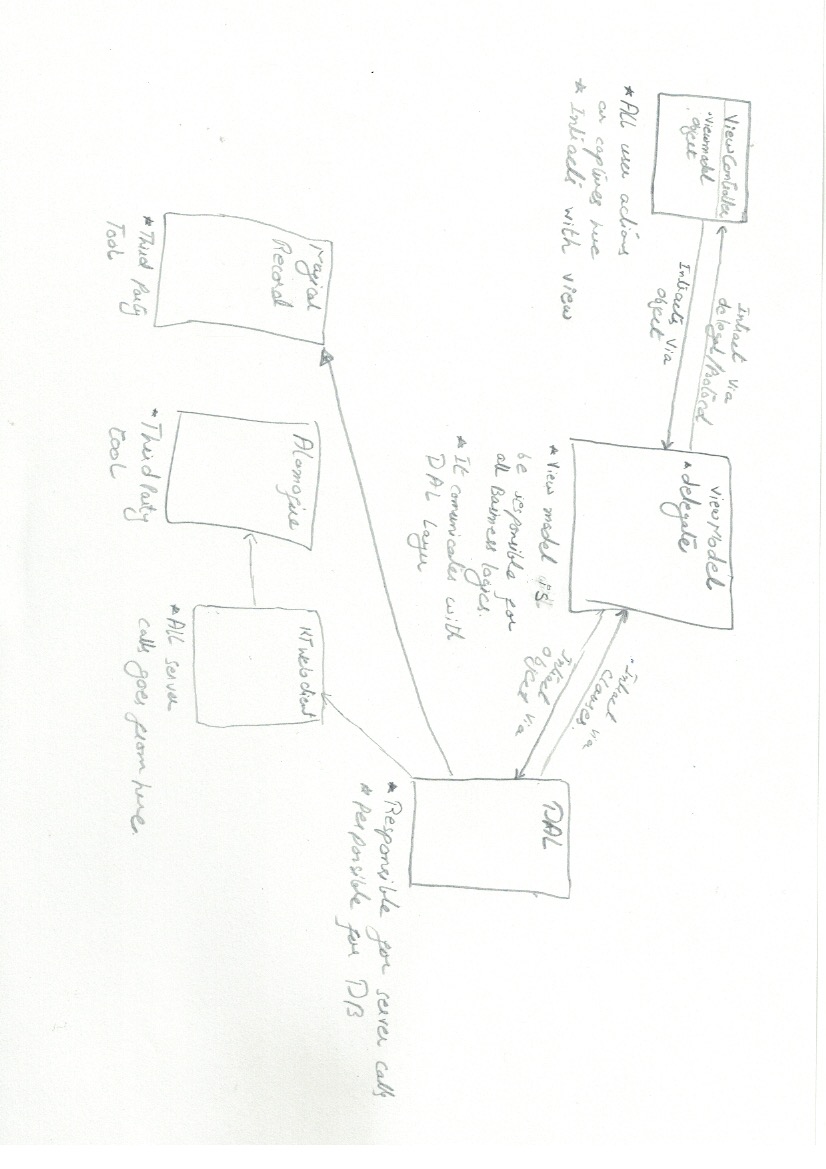 ViewController
* Viewmodel
object
* ALL user actions
ar captures here
* Intracts with view
Intract via
delegat/Protocol
Intracts via
object
viewModel
* delegate
* View model is
be responsible for
all Business logics.
* It comunicates with
DAL Layer
* Intract via
clauses.
Intract via
object
DAL
* Responsible for server calls
* Responsible for DB
Magical
Record
* Third Party
Tool
Alamofire
* Third Party
tool
KTwebclient
* ALL server
calls goes from here.